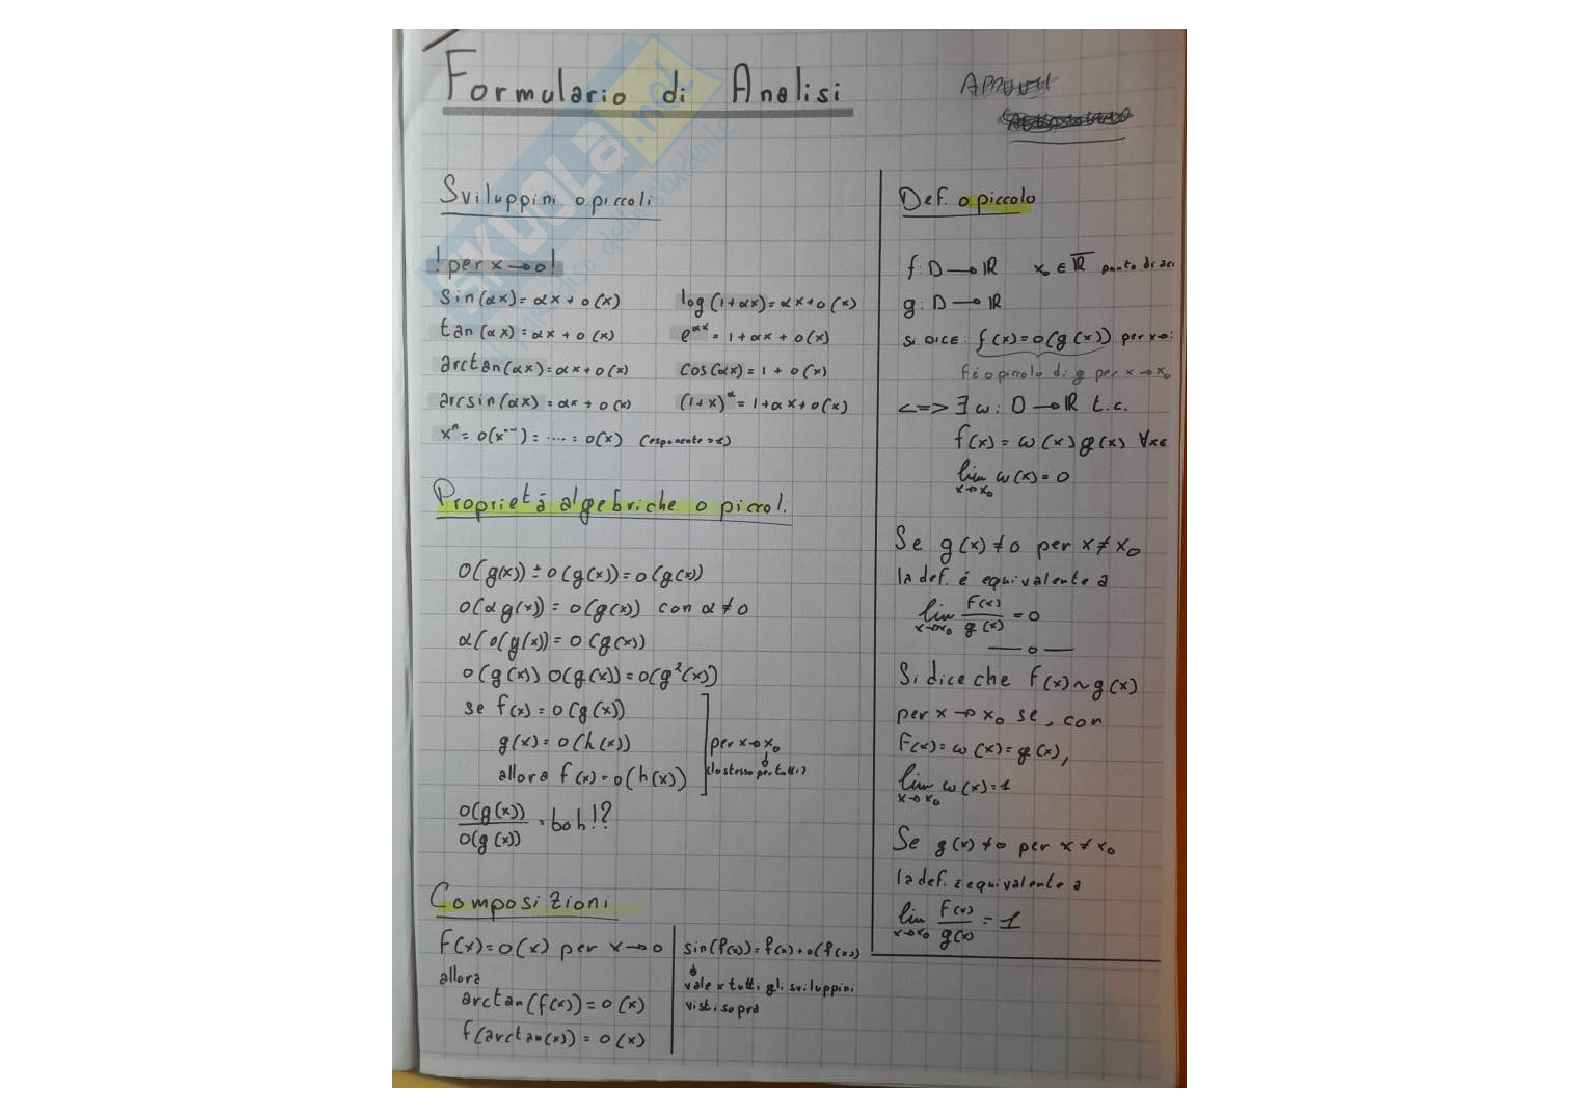 Formulario di Analisi
SKUOLA.net
Sviluppini o piccoli
! per x → 0 !
sin(αx) = αx + o(x)
tan(αx) = αx + o(x)
arctan(αx) = αx + o(x)
arcsin(αx) = αx + o(x)
xⁿ = o(xⁿ⁻¹) = ..... = o(x)
log(1+αx) = αx + o(x)
e^αx = 1 + αx + o(x)
cos(αx) = 1 + o(x)
(1+x)^α = 1 + αx + o(x)
Proprietá algebriche o piccol.
o(g(x)) ± o(g(x)) = o(g(x))
o(αg(x)) = o(g(x)) con α ≠ 0
α(o(g(x)) = o(g(x))
o(g(x)) o(g(x)) = o(g²(x))
se f(x) = o(g(x))
g(x) = o(h(x))
allora f(x) = o(h(x))
per x → x₀
(lo stesso per tutti)
o(g(x))
o(g(x))
= boh!?
Composizioni
f(x) = o(x) per x → 0
allora
arctan(f(x)) = o(x)
f(arctan(x)) = o(x)
sin(f(x)) = f(x) + o(f(x))
vale x tutti gli sviluppini
visti sopra
Def. o piccolo
f: D → ℝ x₀ ∈ ℝ̅ punto di acc
g: D → ℝ
SI DICE: f(x) = o(g(x)) per x→
f è o piccolo di g per x → x₀
<=> ∃ ω: D → ℝ t.c.
f(x) = ω(x) g(x) ∀x∈
lim ω(x) = 0
x→x₀
Se g(x) ≠ 0 per x ≠ x₀
la def. é equivalente a
lim f(x)/g(x) = 0
x→x₀
— o —
Si dice che f(x) ~ g(x)
per x → x₀ se, con
f(x) = ω(x) = g(x),
lim ω(x) = 1
x→x₀
Se g(x) ≠ 0 per x ≠ x₀
la def. è equivalente a
lim f(x)/g(x) = 1
x→x₀